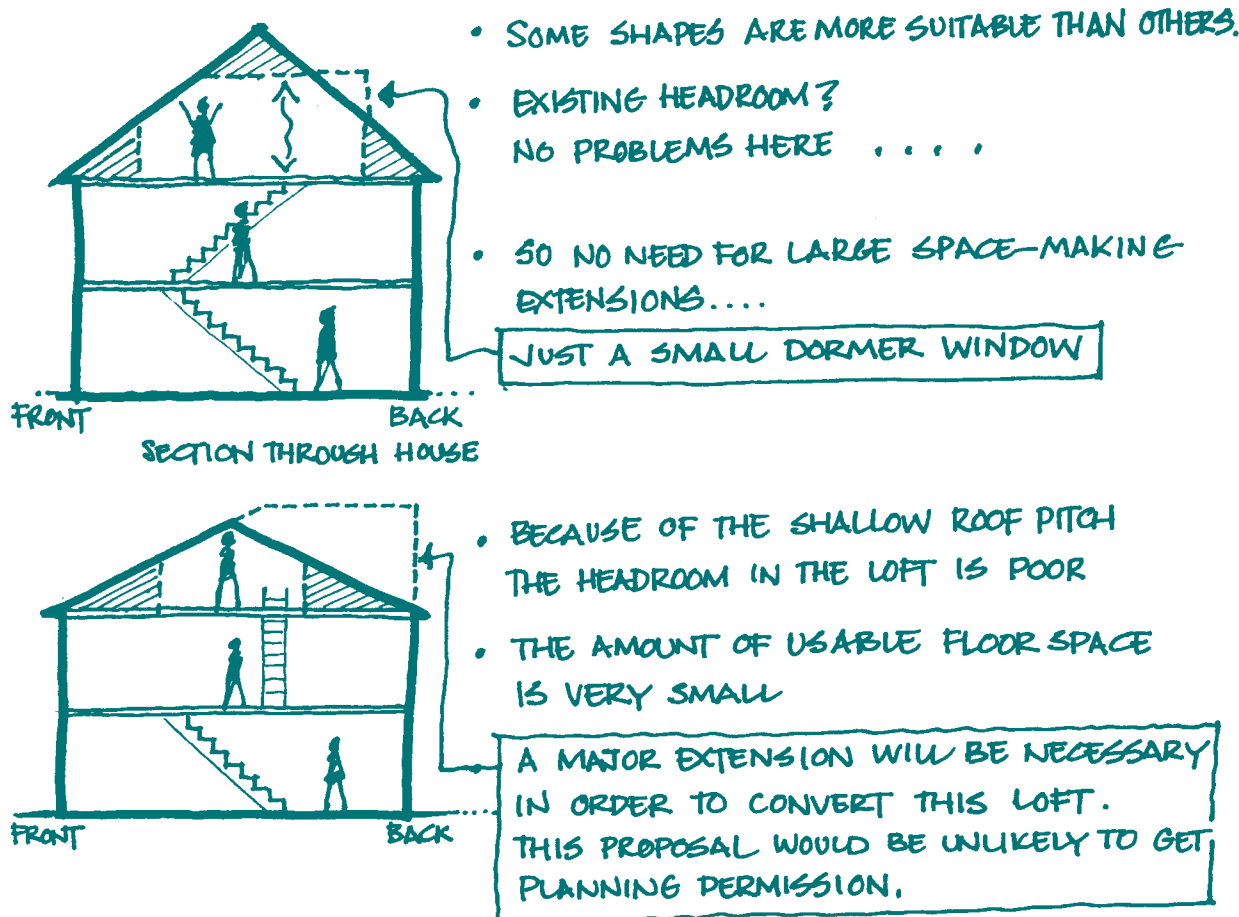 • SOME SHAPES ARE MORE SUITABLE THAN OTHERS.
• EXISTING HEADROOM?
NO PROBLEMS HERE . . . .
• SO NO NEED FOR LARGE SPACE-MAKING
EXTENSIONS....
JUST A SMALL DORMER WINDOW
FRONT
BACK
SECTION THROUGH HOUSE
• BECAUSE OF THE SHALLOW ROOF PITCH
THE HEADROOM IN THE LOFT IS POOR
• THE AMOUNT OF USABLE FLOOR SPACE
IS VERY SMALL
A MAJOR EXTENSION WILL BE NECESSARY
IN ORDER TO CONVERT THIS LOFT.
THIS PROPOSAL WOULD BE UNLIKELY TO GET
PLANNING PERMISSION.
FRONT
BACK